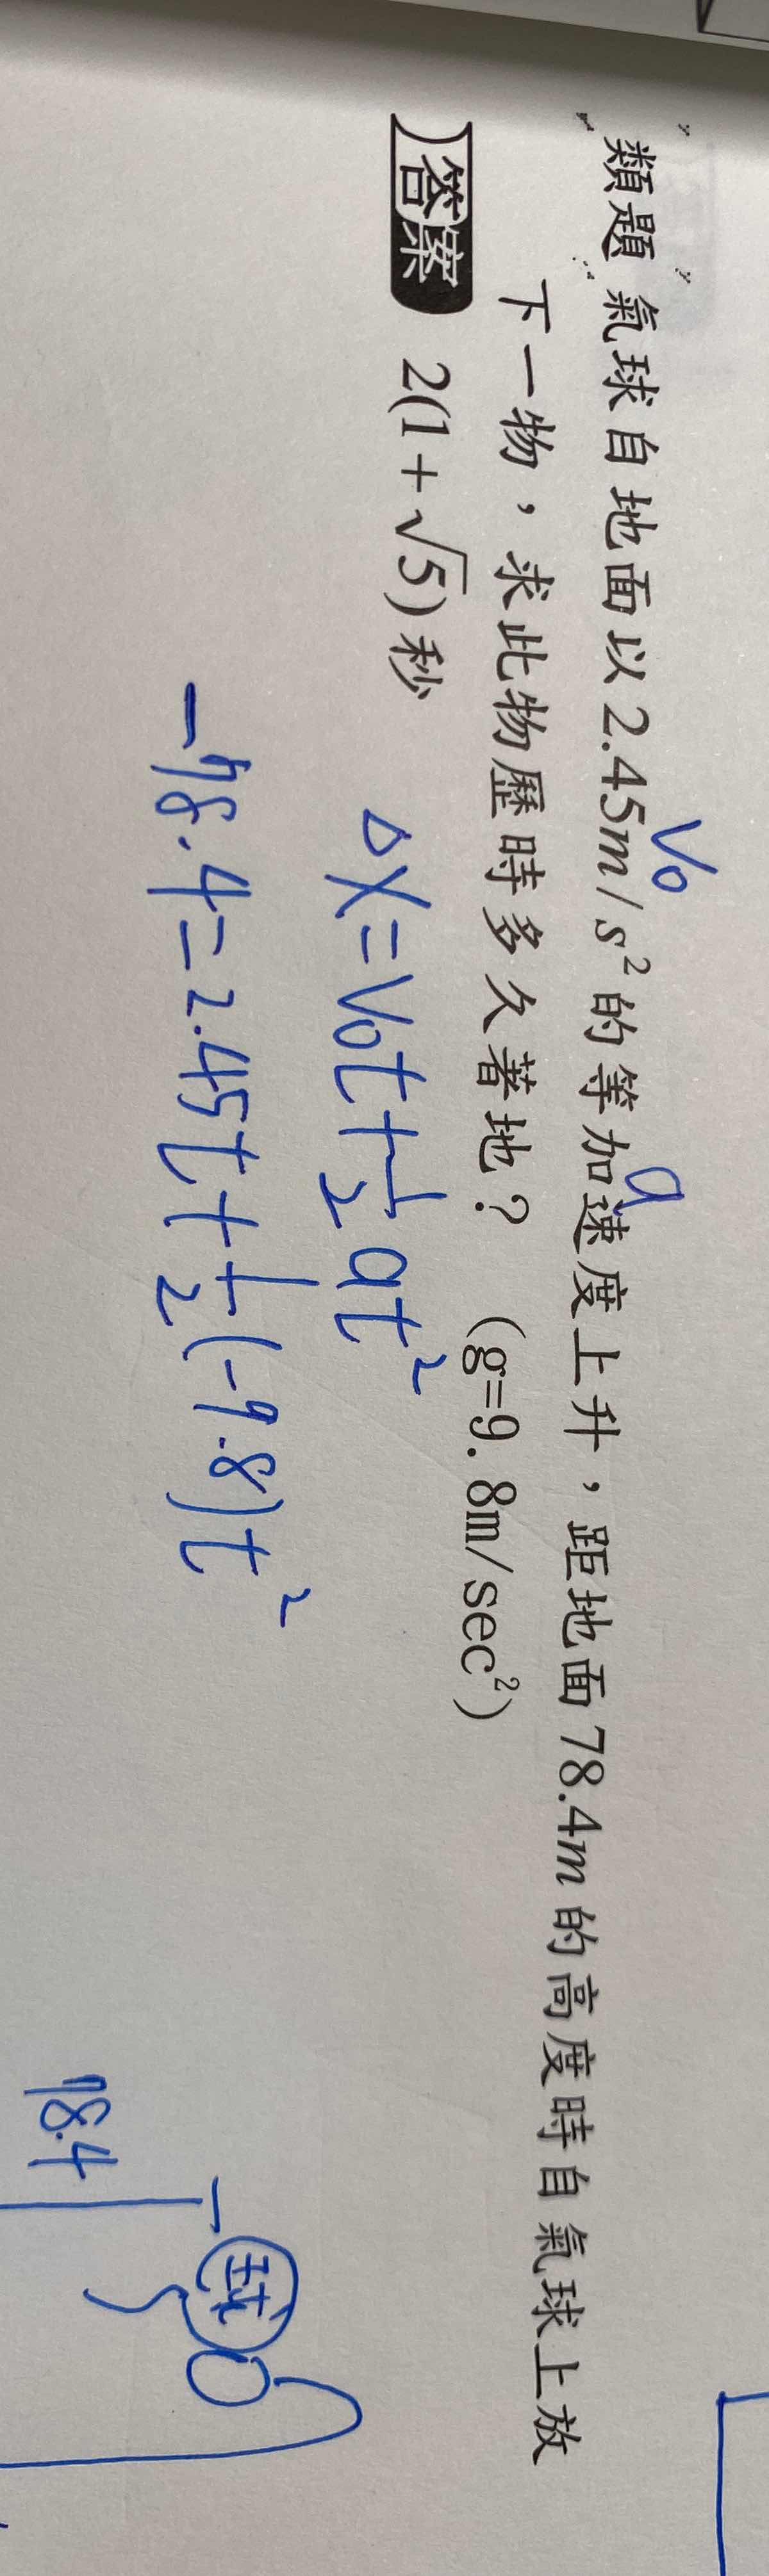 類題 氣球自地面以2.45m/s²的等加速度上升，距地面78.4m的高度時自氣球上放
下一物，求此物歷時多久著地？ (g=9.8m/sec²)
V₀
a
答案 2(1+√5)秒
△X=V₀t+½at²
-78.4=2.45t+½(-9.8)t²
78.4
球